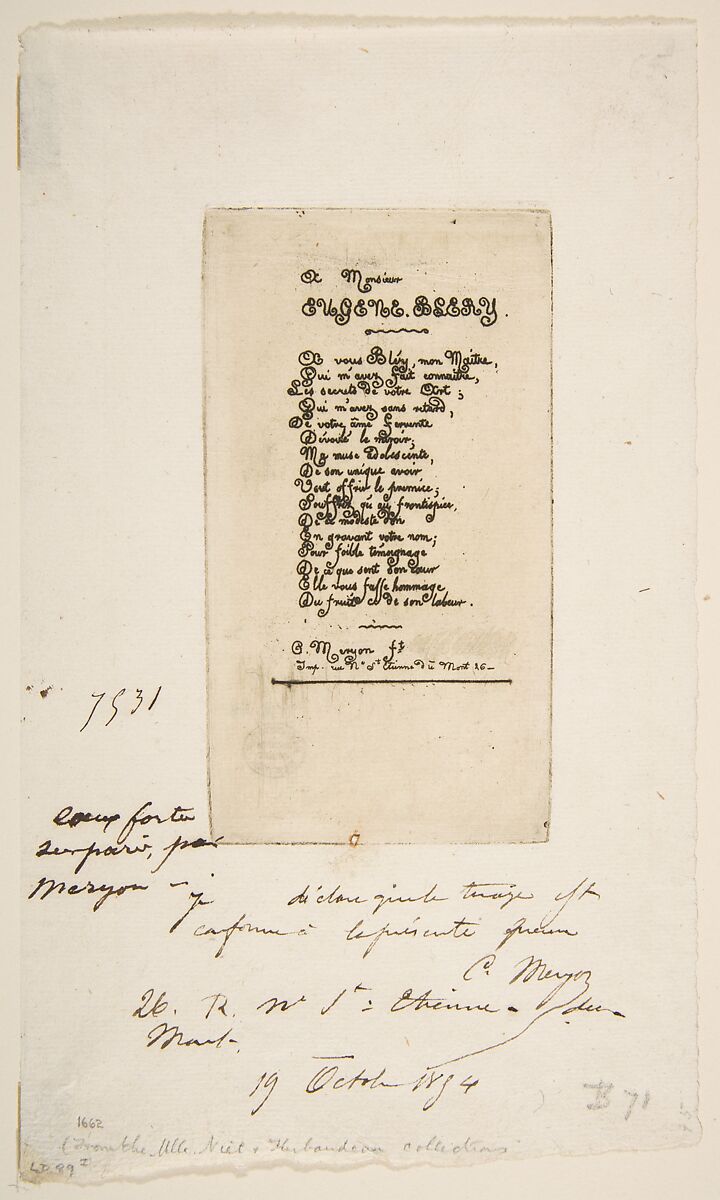 A Monsieur
EUGENE. BLERY.
A vous Bléry, mon Maitre,
Qui m'avez fait connaitre,
Les secrets de votre Art;
Qui m'avez sans retard,
De votre âme fervente
Dévoilé le miroir;
Ma muse adolescente,
De son unique avoir
Veut offrir le premice;
Souffrez qu'au frontispice,
De ce modeste don
En gravant votre nom;
Pour foible témoignage
De ce que sent son cœur
Elle vous fasse hommage
Du fruit ce de son labeur.
C. Meryon ft
Imp. rue Ne St Etienne du Mont 26-
7531
eaux fortes
sur paris, par
Meryon -
je déclare que le tirage est
conforme à la présente épreuve
C. Meryon
26. R. Ne St: Etienne - du -
Mont.
19 Octobre 1854
B 71
1662
(From the Mlle. Niel & Thibaudeau collections
LD 89 I